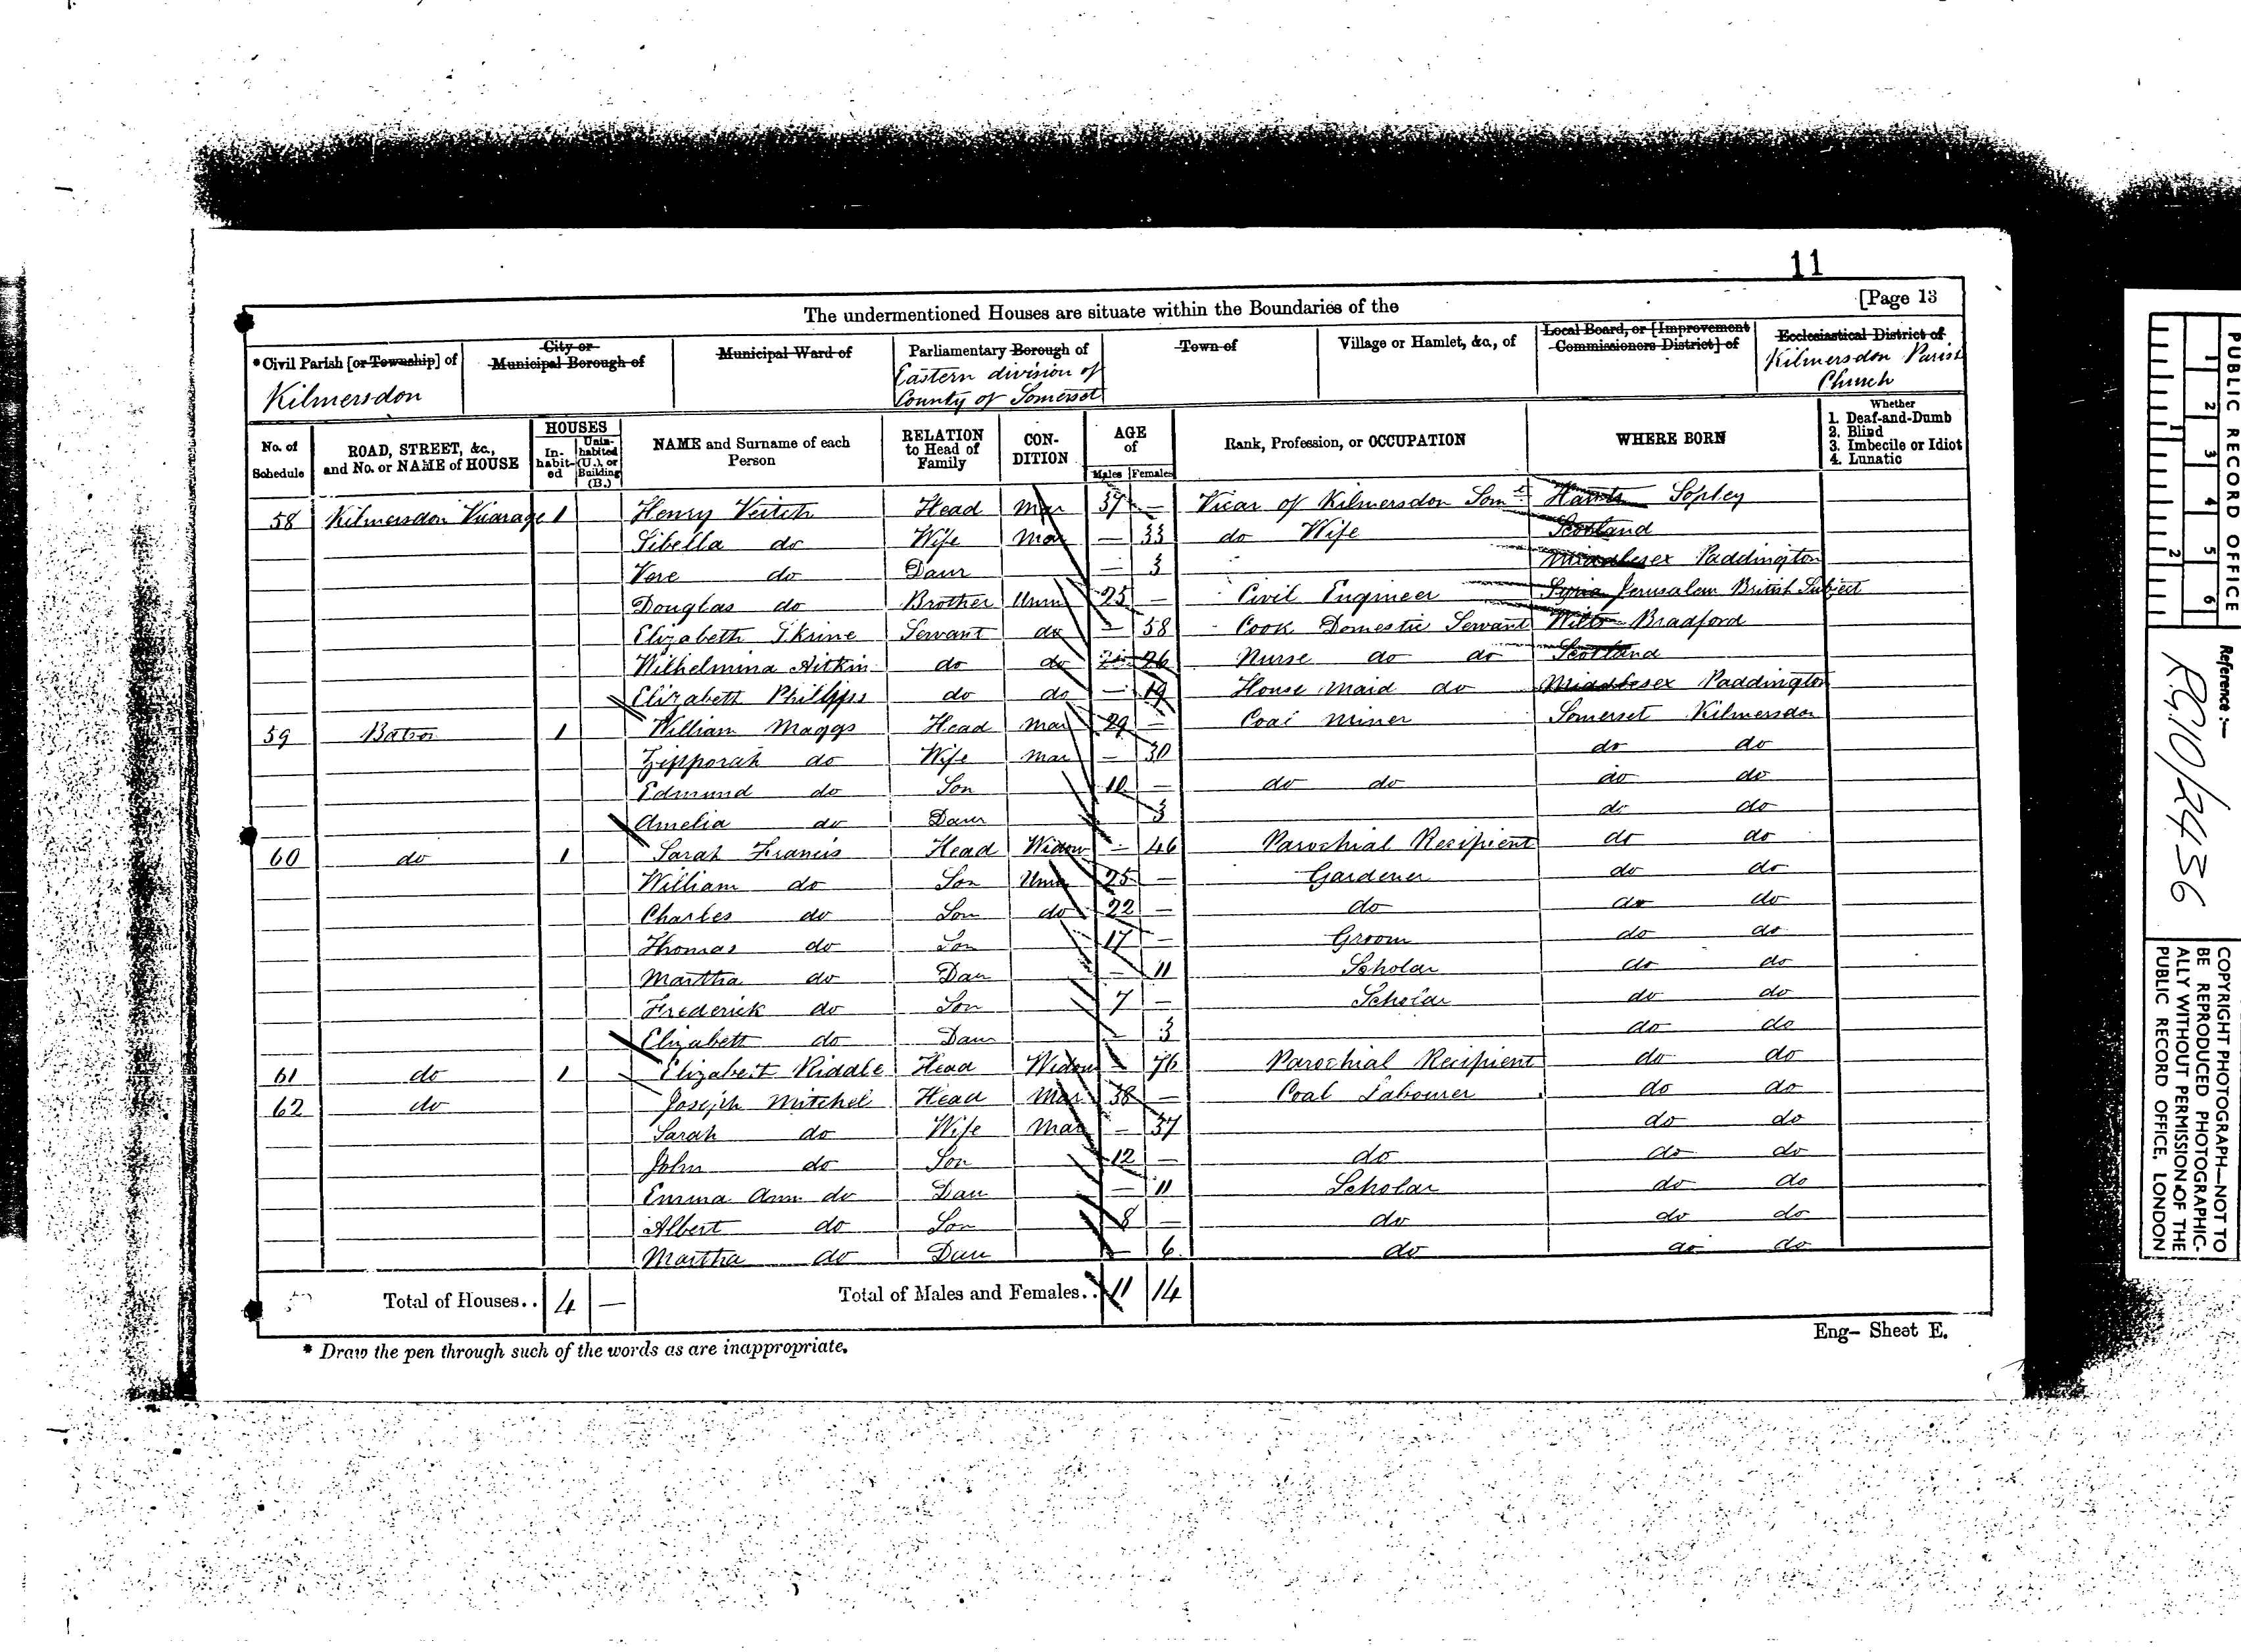 11
The undermentioned Houses are situate within the Boundaries of the [Page 13
* Civil Parish [or Township] of
Kilmersdon
City or Municipal Borough of
Municipal Ward of
Parliamentary Borough of
Eastern division of
County of Somerset
Town of
Village or Hamlet, &c., of
Local Board, or [Improvement
Commissioners District] of
Ecclesiastical District of
Kilmersdon Parish
Church
No. of Schedule
ROAD, STREET, &c., and No. or NAME of HOUSE
HOUSES
In-habit-ed
Unin-habited (U.), or Building (B.)
NAME and Surname of each Person
RELATION to Head of Family
CON-DITION
AGE of
Males Females
Rank, Profession, or OCCUPATION
WHERE BORN
Whether
1. Deaf-and-Dumb
2. Blind
3. Imbecile or Idiot
4. Lunatic
58 Kilmersdon Vicarage 1 Henry Veitch Head Mar 37 — Vicar of Kilmersdon Somt Hants Sopley
Sibella do Wife Mar — 33 do Wife Scotland
Vere do Daur — 3 Middlesex Paddington
Douglas do Brother Unm 25 — Civil Engineer Syria Jerusalem British Subject
Elizabeth Skrine Servant do — 58 Cook Domestic Servant Wilts Bradford
Wilhelmina Aitkin do do 26 Nurse do do Scotland
Elizabeth Phillips do do — 19 House Maid do Middlesex Paddington
59 1 William Maggs Head Mar 29 — Coal Miner Somerset Kilmersdon
Zipporah do Wife Mar — 30 do do
Edmund do Son 10 — do do do do
Amelia do Daur 3 do do
60 do 1 Sarah Francis Head Widow — 46 Parochial Recipient do do
William do Son Unm 25 — Gardener do do
Charles do Son do 22 — do do do
Thomas do Son 17 — Groom do do
Martha do Dau — 11 Scholar do do
Frederick do Son 7 — Scholar do do
Elizabeth do Daur — 3 do do
61 do 1 Elizabeth Riddle Head Widow — 76 Parochial Recipient do do
62 do Joseph Mitchel Head Mar 38 — Coal Labourer do do
Sarah do Wife Mar — 37 do do
John do Son 12 — do do do
Emma Ann do Dau — 11 Scholar do do
Albert do Son 8 — do do do
Martha do Dau — 6 do do do
Total of Houses.. 4 — Total of Males and Females.. 11 14
* Draw the pen through such of the words as are inappropriate.
Eng- Sheet E.
PUBLIC RECORD OFFICE
1 2 3 4 5 6
1 2
Reference :—
R.G.10/2436
COPYRIGHT PHOTOGRAPH—NOT TO
BE REPRODUCED PHOTOGRAPHIC-
ALLY WITHOUT PERMISSION OF THE
PUBLIC RECORD OFFICE, LONDON